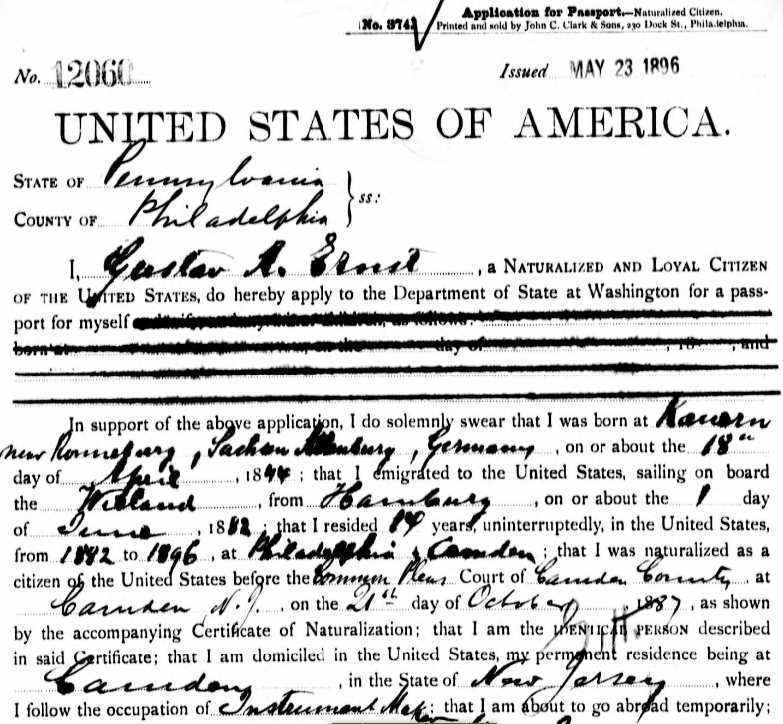 Application for Passport.—Naturalized Citizen.
No. 374. Printed and sold by John C. Clark & Sons, 230 Dock St., Philadelphia.
No. 12060 Issued MAY 23 1896
UNITED STATES OF AMERICA.
STATE OF Pennsylvania
COUNTY OF Philadelphia } ss:
I, Gustav A. Ernst, a NATURALIZED AND LOYAL CITIZEN
OF THE UNITED STATES, do hereby apply to the Department of State at Washington for a pass-
port for myself
born at on the day of , 18 , and
In support of the above application, I do solemnly swear that I was born at Kauern
near Ronneburg, Sachsen Altenburg, Germany, on or about the 18th
day of April, 1844; that I emigrated to the United States, sailing on board
the Wieland, from Hamburg, on or about the 1 day
of June, 1882; that I resided 14 years, uninterruptedly, in the United States,
from 1882 to 1896, at Philadelphia & Camden; that I was naturalized as a
citizen of the United States before the Common Pleas Court of Camden County, at
Camden N.J., on the 21st day of October, 1887, as shown
by the accompanying Certificate of Naturalization; that I am the IDENTICAL PERSON described
in said Certificate; that I am domiciled in the United States, my permanent residence being at
Camden, in the State of New Jersey, where
I follow the occupation of Instrument Maker; that I am about to go abroad temporarily;